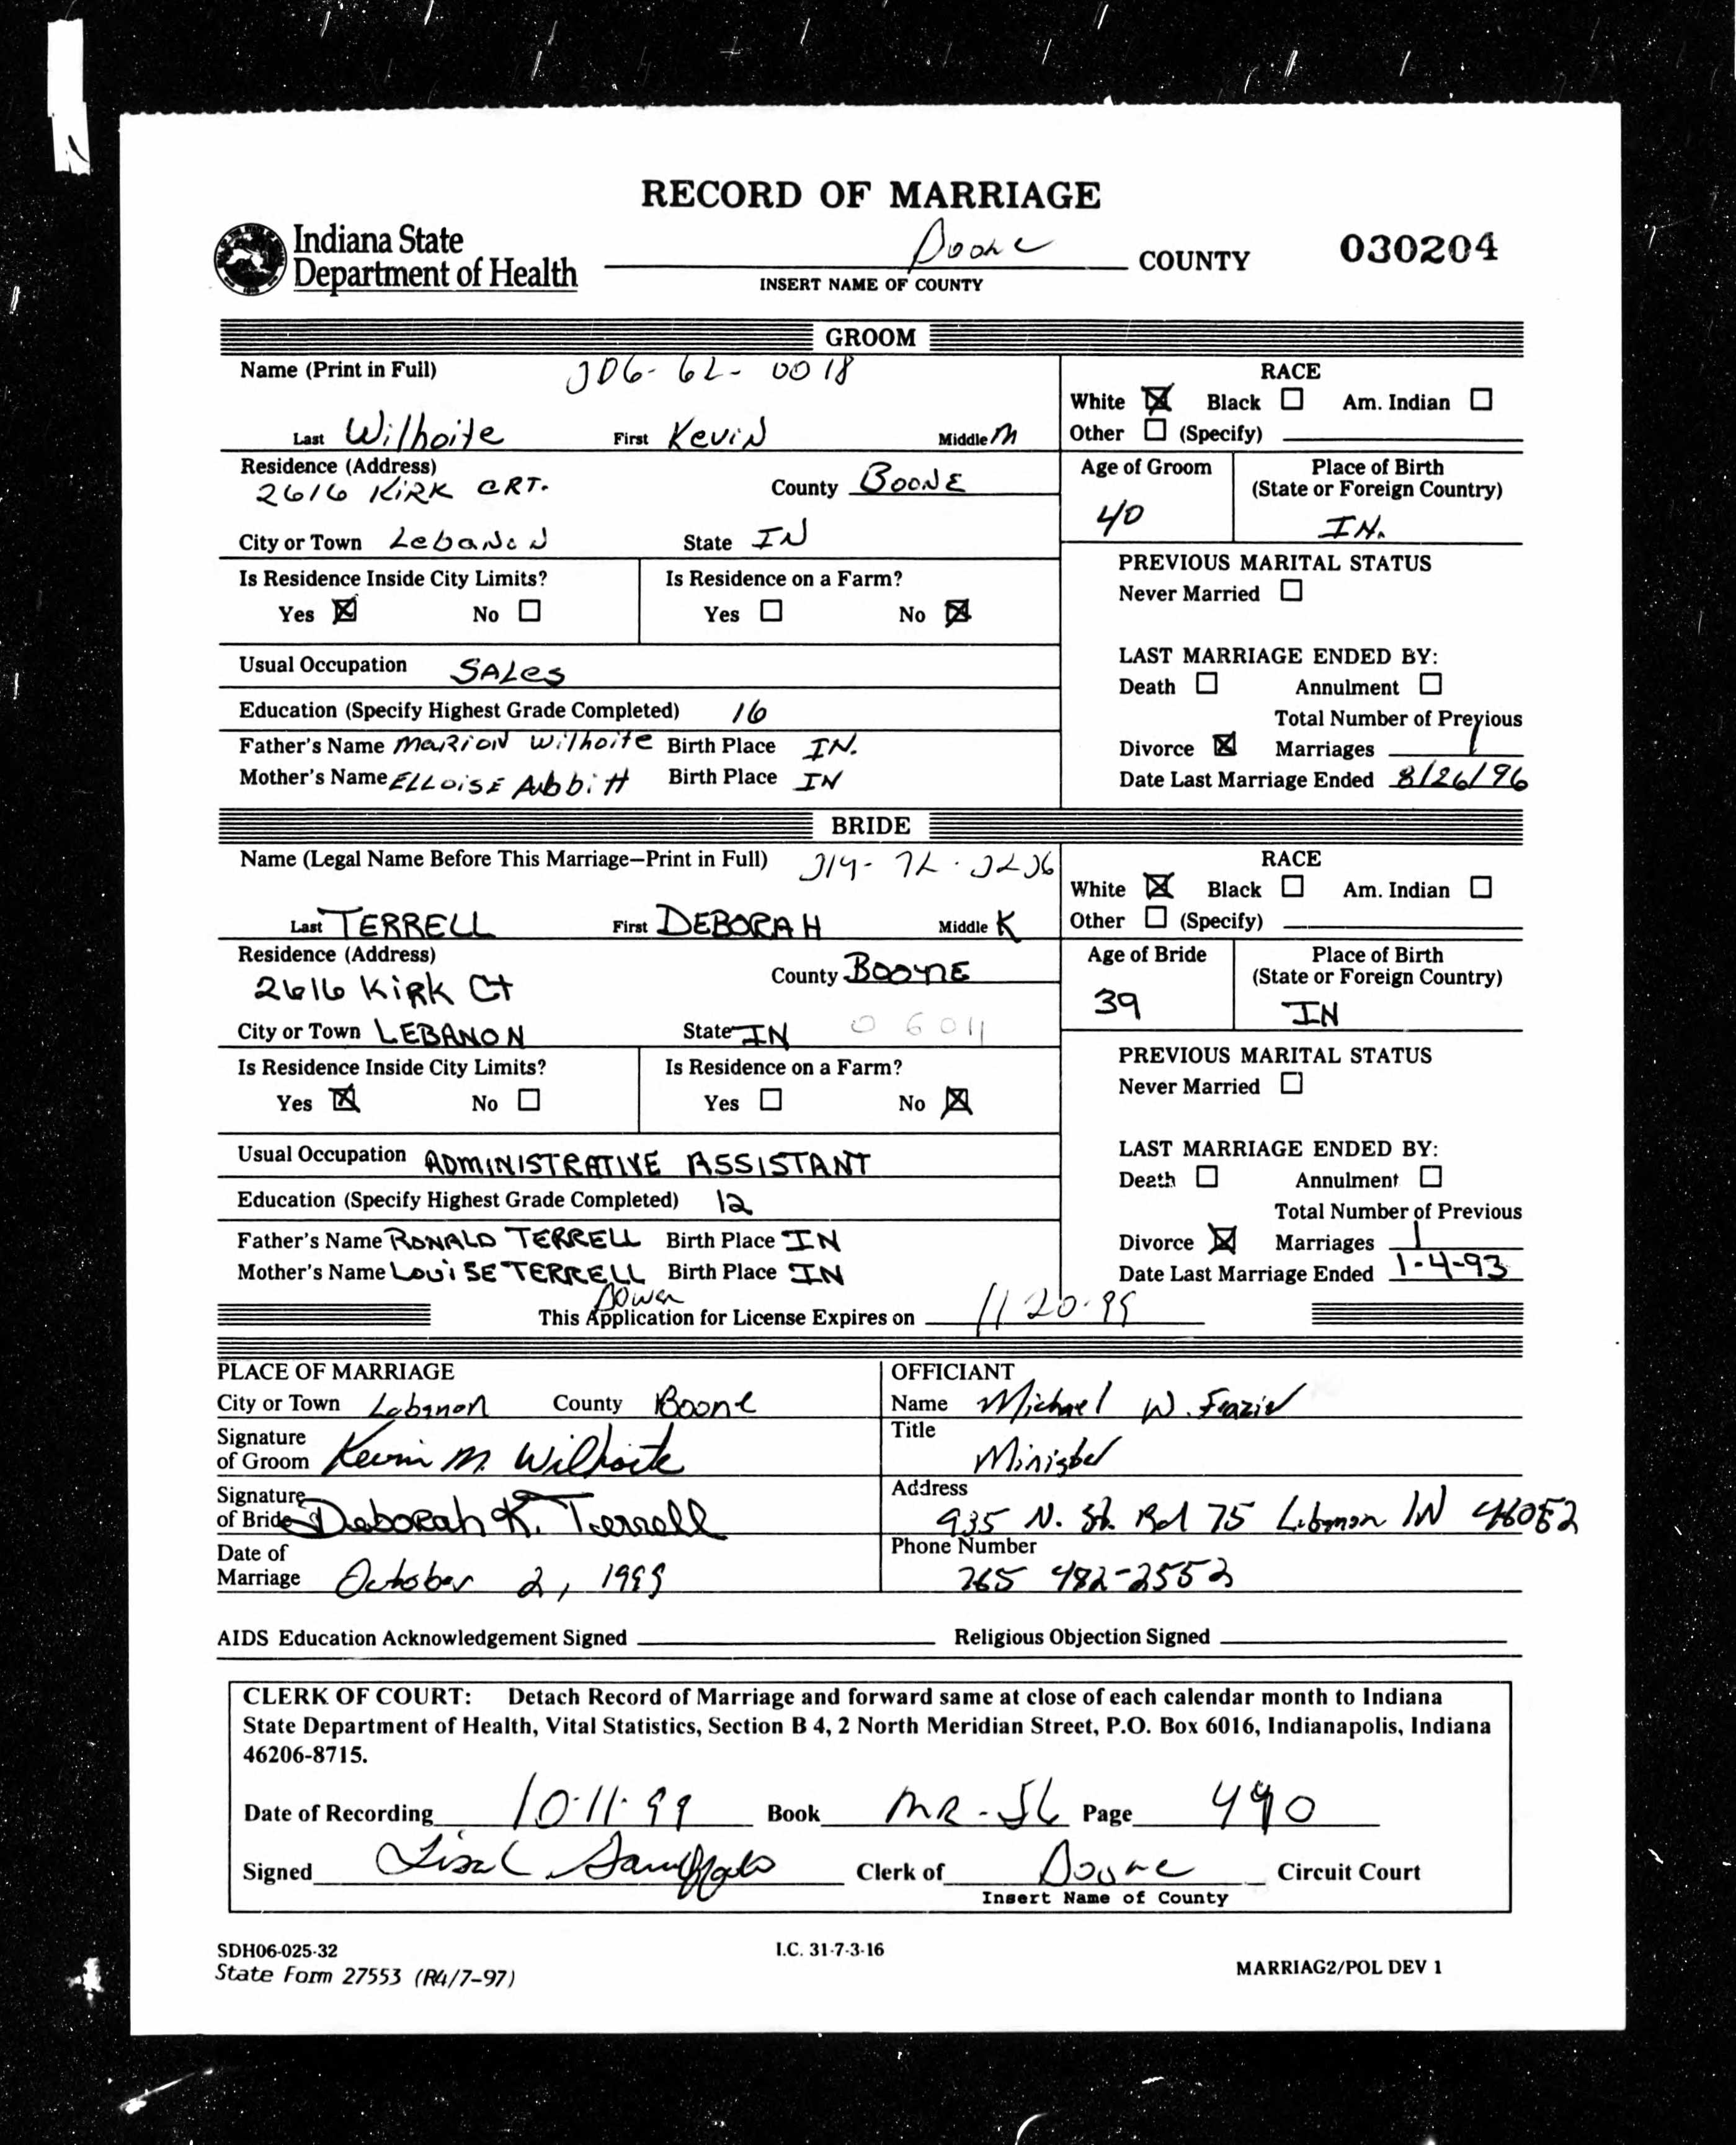 RECORD OF MARRIAGE
Indiana State
Department of Health
Boone COUNTY 030204
INSERT NAME OF COUNTY
GROOM
Name (Print in Full)
RACE
White ☒ Black ☐ Am. Indian ☐
Last Wilhoite First Kevin Middle M
Other ☐ (Specify)
Residence (Address)
2616 KIRK CRT.
County BOONE
Age of Groom
40
Place of Birth
(State or Foreign Country)
IN.
City or Town Lebanon State IN
Is Residence Inside City Limits?
Yes ☒ No ☐
Is Residence on a Farm?
Yes ☐ No ☒
PREVIOUS MARITAL STATUS
Never Married ☐
Usual Occupation SALes
Education (Specify Highest Grade Completed) 16
Father's Name MARION Wilhoite Birth Place IN.
Mother's Name ELLOISE Abbitt Birth Place IN
LAST MARRIAGE ENDED BY:
Death ☐ Annulment ☐
Total Number of Previous
Divorce ☒ Marriages 1
Date Last Marriage Ended 8/26/96
BRIDE
Name (Legal Name Before This Marriage–Print in Full)
RACE
White ☒ Black ☐ Am. Indian ☐
Last TERRELL First DEBORAH Middle K
Other ☐ (Specify)
Residence (Address)
2616 KIRK Ct
County BOONE
Age of Bride
39
Place of Birth
(State or Foreign Country)
IN
City or Town LEBANON State IN 0 6 0 11
Is Residence Inside City Limits?
Yes ☒ No ☐
Is Residence on a Farm?
Yes ☐ No ☒
PREVIOUS MARITAL STATUS
Never Married ☐
Usual Occupation ADMINISTRATIVE ASSISTANT
Education (Specify Highest Grade Completed) 12
Father's Name RONALD TERRELL Birth Place IN
Mother's Name LOUISE TERRELL Birth Place IN
LAST MARRIAGE ENDED BY:
Death ☐ Annulment ☐
Total Number of Previous
Divorce ☒ Marriages 1
Date Last Marriage Ended 1-4-93
This Application for License Expires on 11 20-99
PLACE OF MARRIAGE
City or Town Lebanon County Boone
Signature
of Groom Kevin M. Wilhoite
Signature
of Bride Deborah K. Terrell
Date of
Marriage October 2, 1999
OFFICIANT
Name Michael W. Frazier
Title
Minister
Address
935 N. St. Rd 75 Lebanon IN 46052
Phone Number
765 482-2552
AIDS Education Acknowledgement Signed Religious Objection Signed
CLERK OF COURT: Detach Record of Marriage and forward same at close of each calendar month to Indiana
State Department of Health, Vital Statistics, Section B 4, 2 North Meridian Street, P.O. Box 6016, Indianapolis, Indiana
46206-8715.
Date of Recording 10-11-99 Book MR-56 Page 490
Signed Clerk of Boone Circuit Court
Insert Name of County
SDH06-025-32
State Form 27553 (R4/7-97)
I.C. 31-7-3-16
MARRIAG2/POL DEV 1